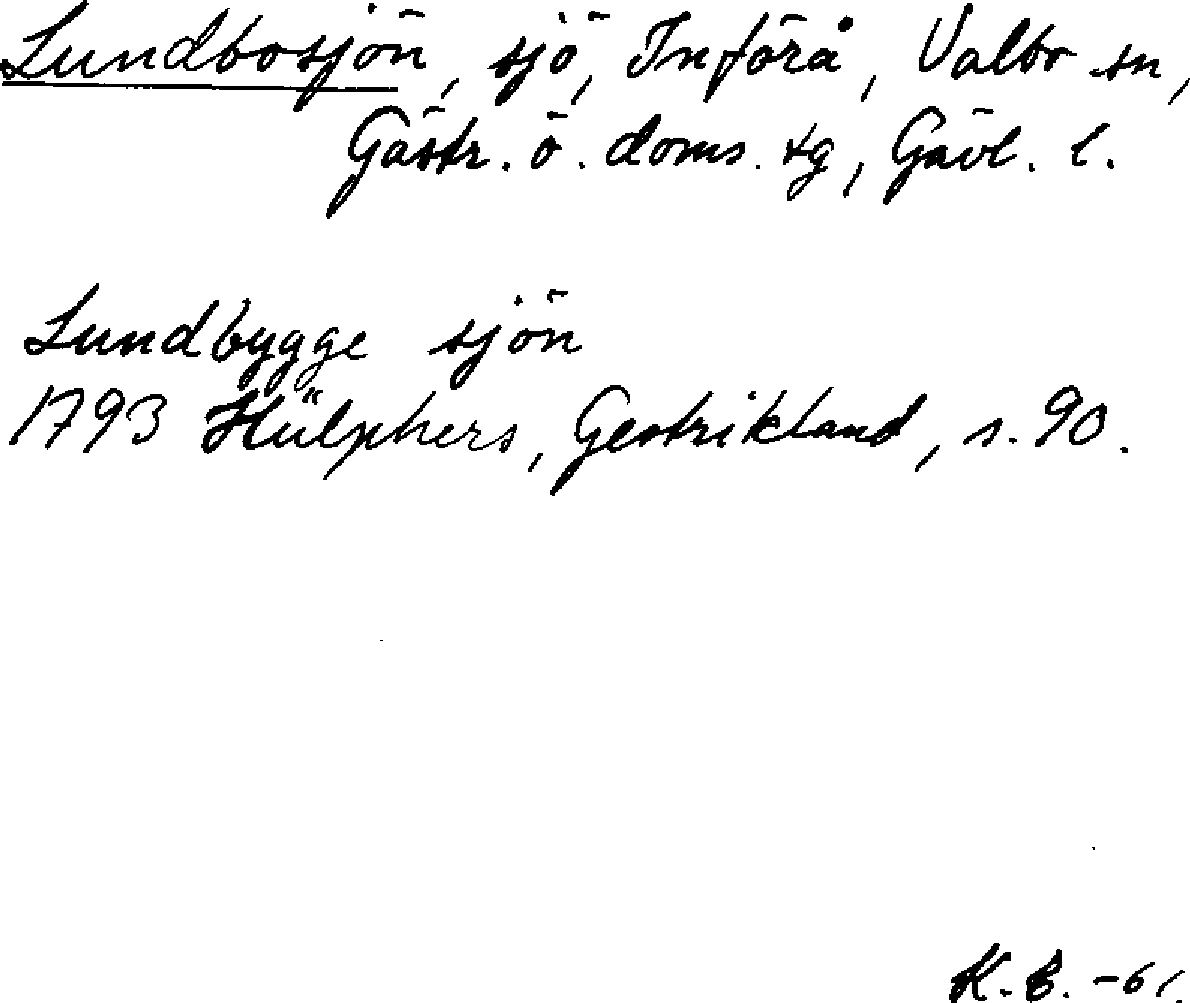 Lundbosjön, sjö, Införå, Valbo sn,
Gästr. ö. doms. tg, Gävl. l.
Lundbygge sjön
1793 Hülphers, Gestrikland, s. 90.
K. B. -61.